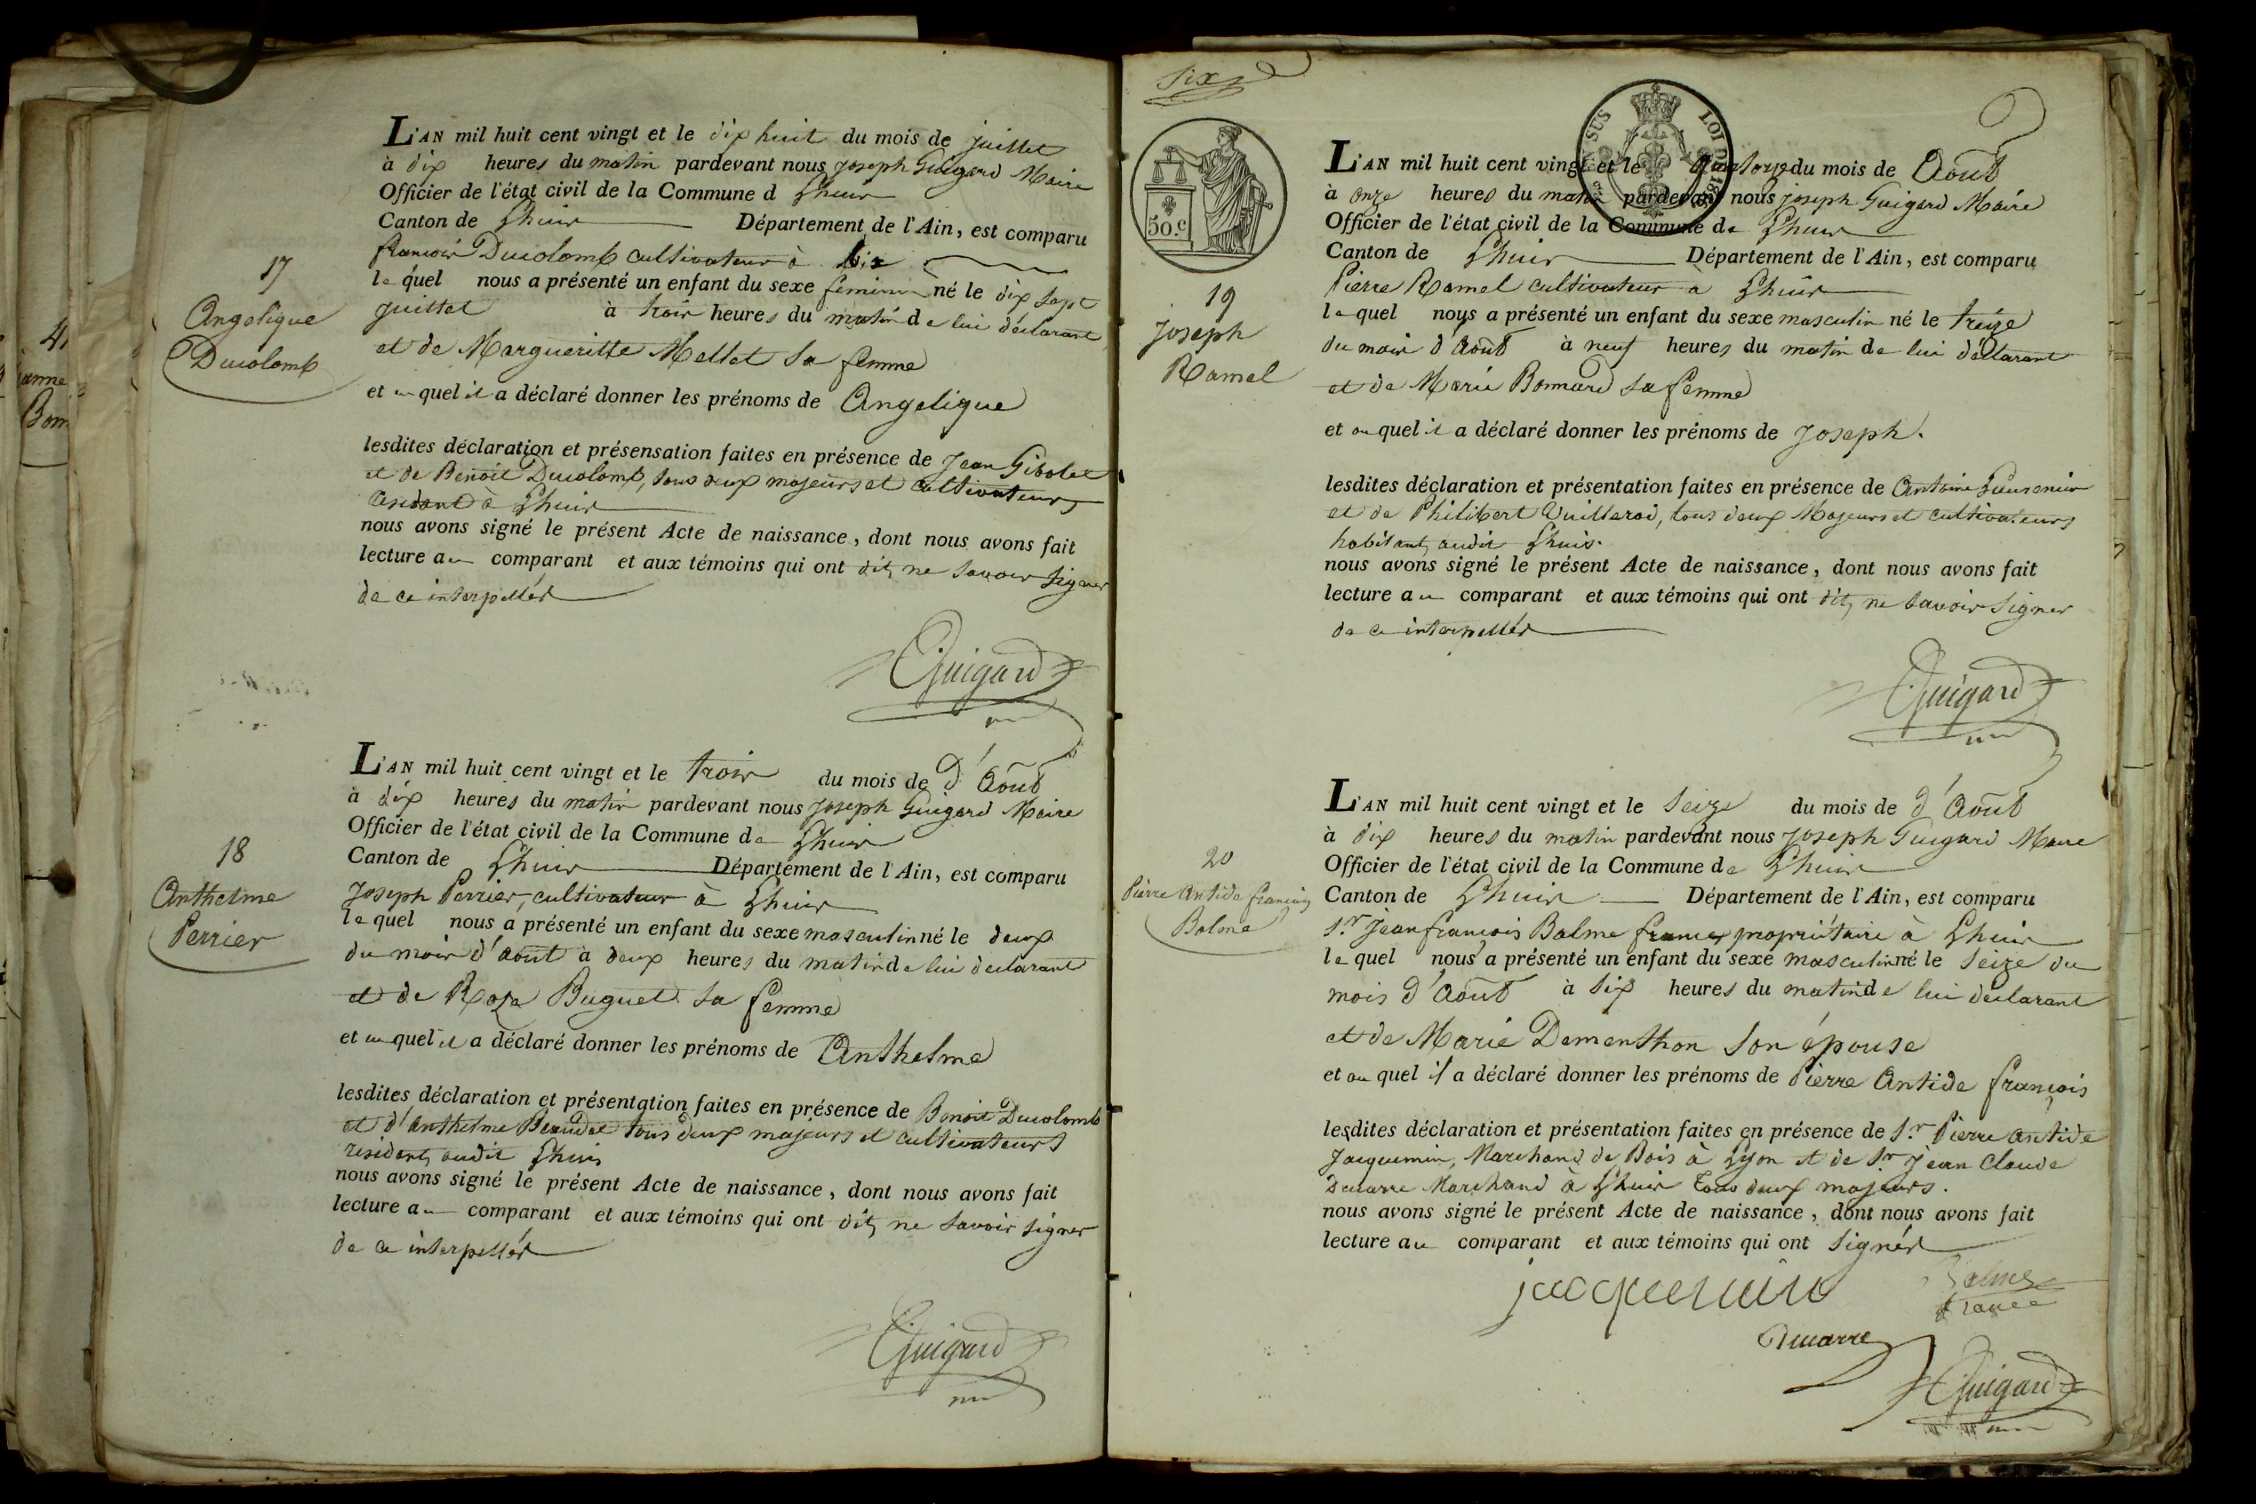 17
Angelique
Ducolomb
L'AN mil huit cent vingt et le dix huit du mois de juillet
à dix heures du matin pardevant nous Joseph Guigard Maire
Officier de l'état civil de la Commune d Lhuis
Canton de Lhuis Département de l'Ain, est comparu
francois Ducolomb cultivateur à
le quel nous a présenté un enfant du sexe feminin né le dix sept
juillet à trois heures du matin de lui déclarant
et de Margueritte Mellet sa femme
et au quel il a déclaré donner les prénoms de Angelique
lesdites déclaration et présensation faites en présence de Jean Gibolet
et de Benoit Ducolomb, tous deux majeurs et cultivateurs
résidant à Lhuis
nous avons signé le présent Acte de naissance, dont nous avons fait
lecture au comparant et aux témoins qui ont dit, ne savoir signer
de ce interpellés
Guigard
18
Anthelme
Perrier
L'AN mil huit cent vingt et le trois du mois de d'Août
à dix heures du matin pardevant nous Joseph Guigard Maire
Officier de l'état civil de la Commune de Lhuis
Canton de Lhuis Département de l'Ain, est comparu
Joseph Perrier, cultivateur à Lhuis
le quel nous a présenté un enfant du sexe masculin né le deux
du mois d'août à deux heures du matin de lui declarant
et de Roza Buguet sa femme
et au quel il a déclaré donner les prénoms de Anthelme
lesdites déclaration et présentation faites en présence de Benoit Ducolomb
et d'Anthelme tous deux majeurs et cultivateurs
résidant, audit Lhuis
nous avons signé le présent Acte de naissance, dont nous avons fait
lecture au comparant et aux témoins qui ont dit, ne savoir signer
de ce interpellés
Guigard
Six
50.c
LOI DE 18
19
Joseph
Ramel
L'AN mil huit cent vingt et le quatorze du mois de Août
à onze heures du matin pardevant nous joseph Guigard Maire
Officier de l'état civil de la Commune de Lhuis
Canton de Lhuis Département de l'Ain, est comparu
Pierre Ramel cultivateur à Lhuis
le quel nous a présenté un enfant du sexe masculin né le treize
du mois d'Août à neuf heures du matin de lui déclarant
et de Marie Bonnard sa femme
et au quel il a déclaré donner les prénoms de Joseph.
lesdites déclaration et présentation faites en présence de Antoine
et de Philibert Vuillerod, tous deux Majeurs et cultivateurs
habitant, audit Lhuis.
nous avons signé le présent Acte de naissance, dont nous avons fait
lecture au comparant et aux témoins qui ont dit, ne savoir signer
de ce interpellés
Guigard
20
Pierre Antide francois
Balme
L'AN mil huit cent vingt et le seize du mois de d'Août
à dix heures du matin pardevant nous Joseph Guigard Maire
Officier de l'état civil de la Commune de Lhuis
Canton de Lhuis Département de l'Ain, est comparu
S.r Jean francois Balme france propriétaire à Lhuis
le quel nous a présenté un enfant du sexe masculin né le seize du
mois d'Août à six heures du matin de lui declarant
et de Marie Dementhon son épouse
et au quel il a déclaré donner les prénoms de Pierre Antide françois
lesdites déclaration et présentation faites en présence de S.r Pierre Antide
Jacquemin, Marchand de Bois à Lyon et de S.r Jean Claude
Ducarre Marchand à Lhuis Tous deux majeurs.
nous avons signé le présent Acte de naissance, dont nous avons fait
lecture au comparant et aux témoins qui ont signés
jacquemin
Balme
france
Ducarre
Guigard